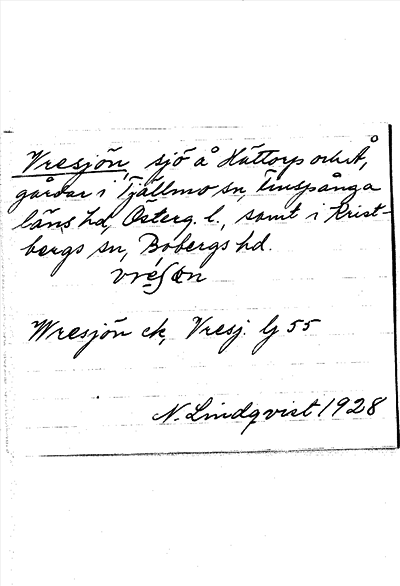 Vresjön, sjö å Hättorp och Å,
gårdar i Tjällmo sn, Finspånga
läns hd, Österg. l., samt i Krist-
bergs sn, Bobergs hd.
Wresjön ek, Vresj. lj 55
N. Lindqvist 1928